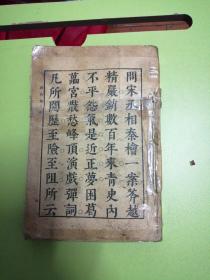 問宋丞相秦檜一案斧越
精嚴銷數百年來青史內
不平怨氣是近正夢困葛
藟宮戲愁峰頂演戲彈詞
凡所閱歷至險至阻所云